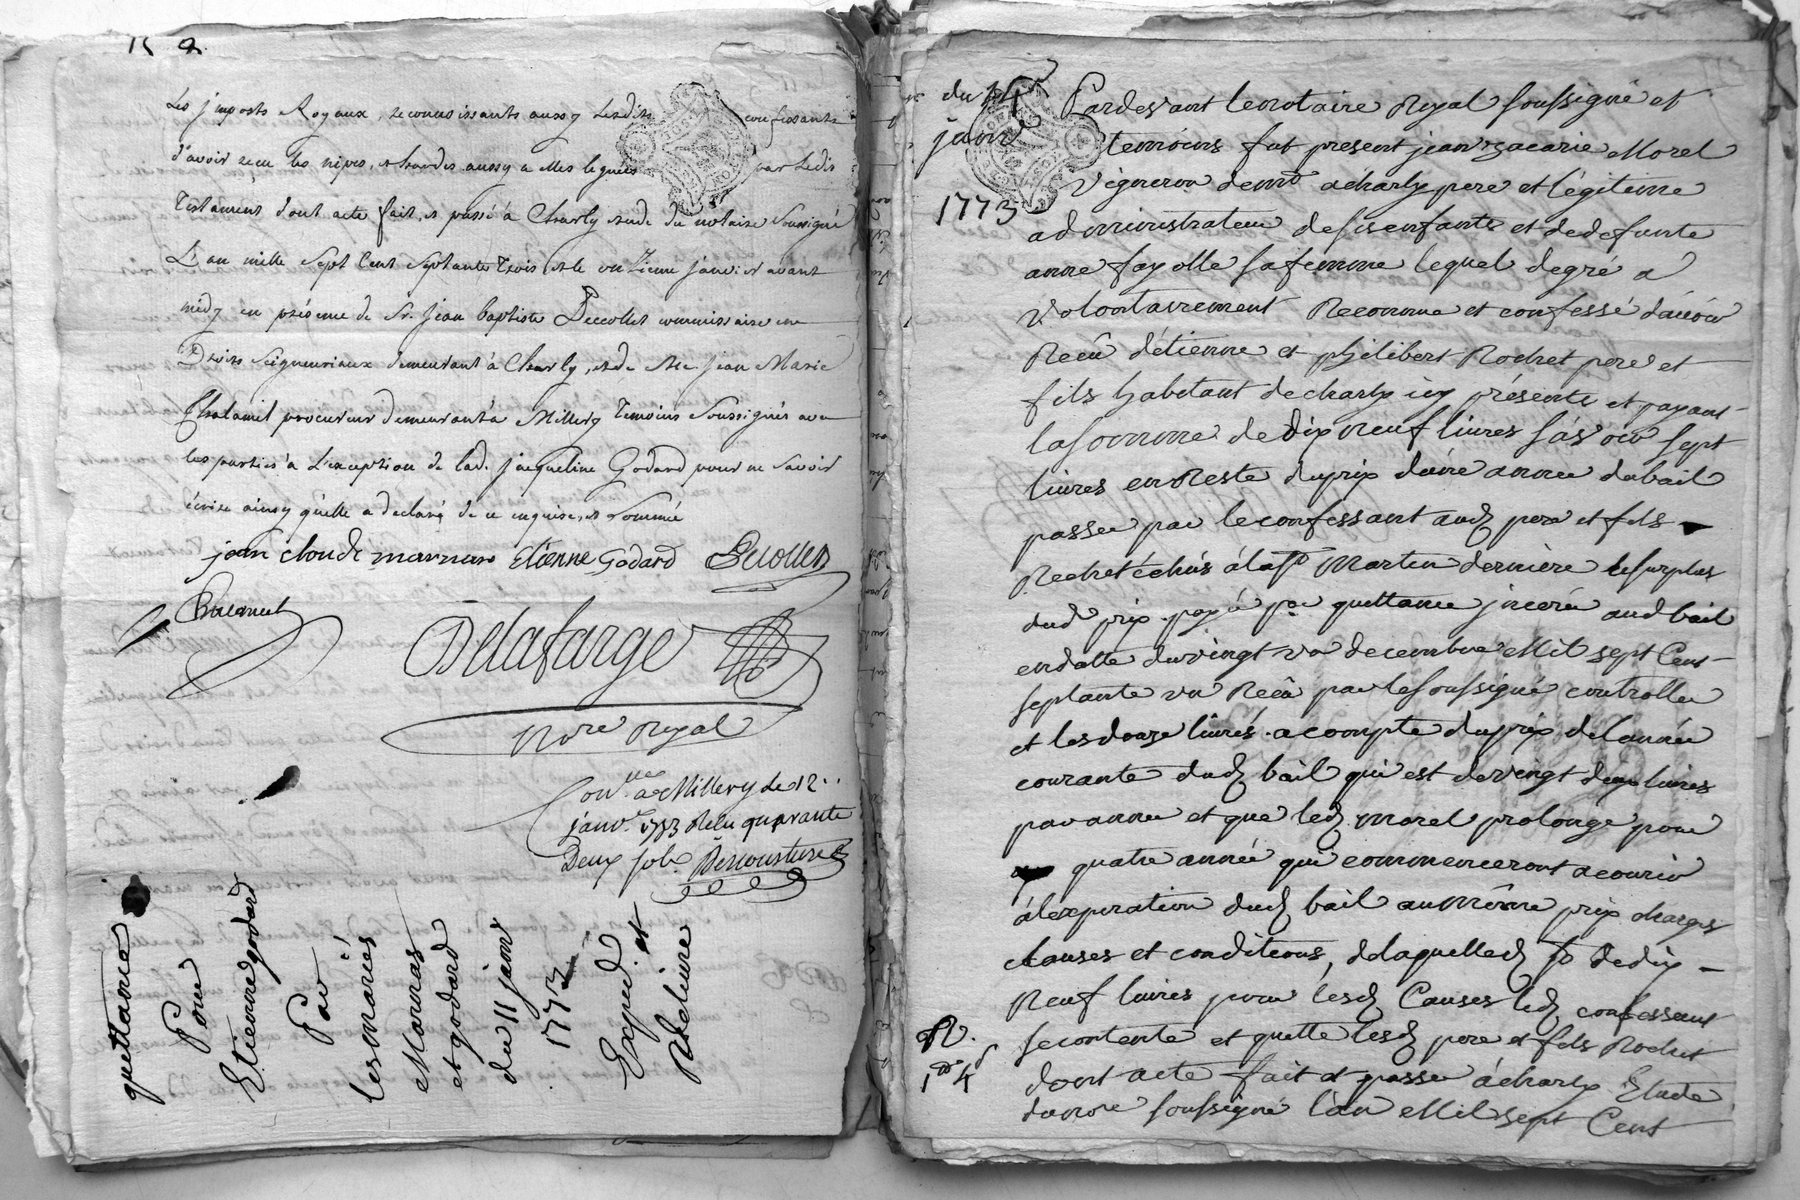 Les jmposts Royaux, reconnoissants aussy lesdits confessants
d'avoir recu les nipes, et hardes aussy a elles legués par ledit
Testament dont acte fait, et passé à Charly etude du notaire soussigné
L'an mille sept Cent septante trois et le onzieme janvier avant
midy en présence de Sr. Jean baptiste Decollet commissaire en
Droits seigneuriaux demeurant à Charly, et de Me Jean Marie
procureur demeurant à Millery temoins soussignés avec
les parties à L'exception de lad. jacqueline Godard pour ne savoir
écrire ainsy qu'elle a declaré de ce enquise, et sommée
jean cloude marnas Etienne Godard
Delafarge
Nore Royal
Con.lle a Millery le 12
janv. 1773 Recu quarante
Deux sols
quettance
Pour
Etienne godard
Par
les mariés
Marnas
et godard
du 11 janv
1773
Exped. et
Rxelivre
du 14
janv
1773
Pardevant le notaire Royal soussigné et
temoins fut present jean zacarie Morel
vigneron demt a charly pere et légitime
administrateur de ses enfants et de defunte
anne fayolle sa femme lequel de gré a
volontairement Reconnu et confessé d'avoir
Recû d'étienne et philibert Rochet pere et
fils habitant de charly icy présents et payant
la somme de dix neuf livres sávoir sept
livres en Reste du prix d'une année du bail
passée par le confessant aud pere et fils
Rochet échûs á la st Martin derniére le surplus
dud prix payé par quettance jncerée aud bail
en datte du vingt un decembre Mil sept Cent
septante un Recû par le soussigné controllé
et les douze livres a compte du prix de l'année
courante dud bail qui est de vingt deux livres
par année et que led morel prolonge pour
quatre année qui commenceront a courir
á l'expiration dud bail au même prix charges
clauses et conditions, de laquelle d. so de dix
neuf livres pour lesd Causes led confessant
se contente et quette lesd pere et fils Rochet
dont acte fait et passé á charly Etude
du nore soussigné l'an Mil sept Cent
R.